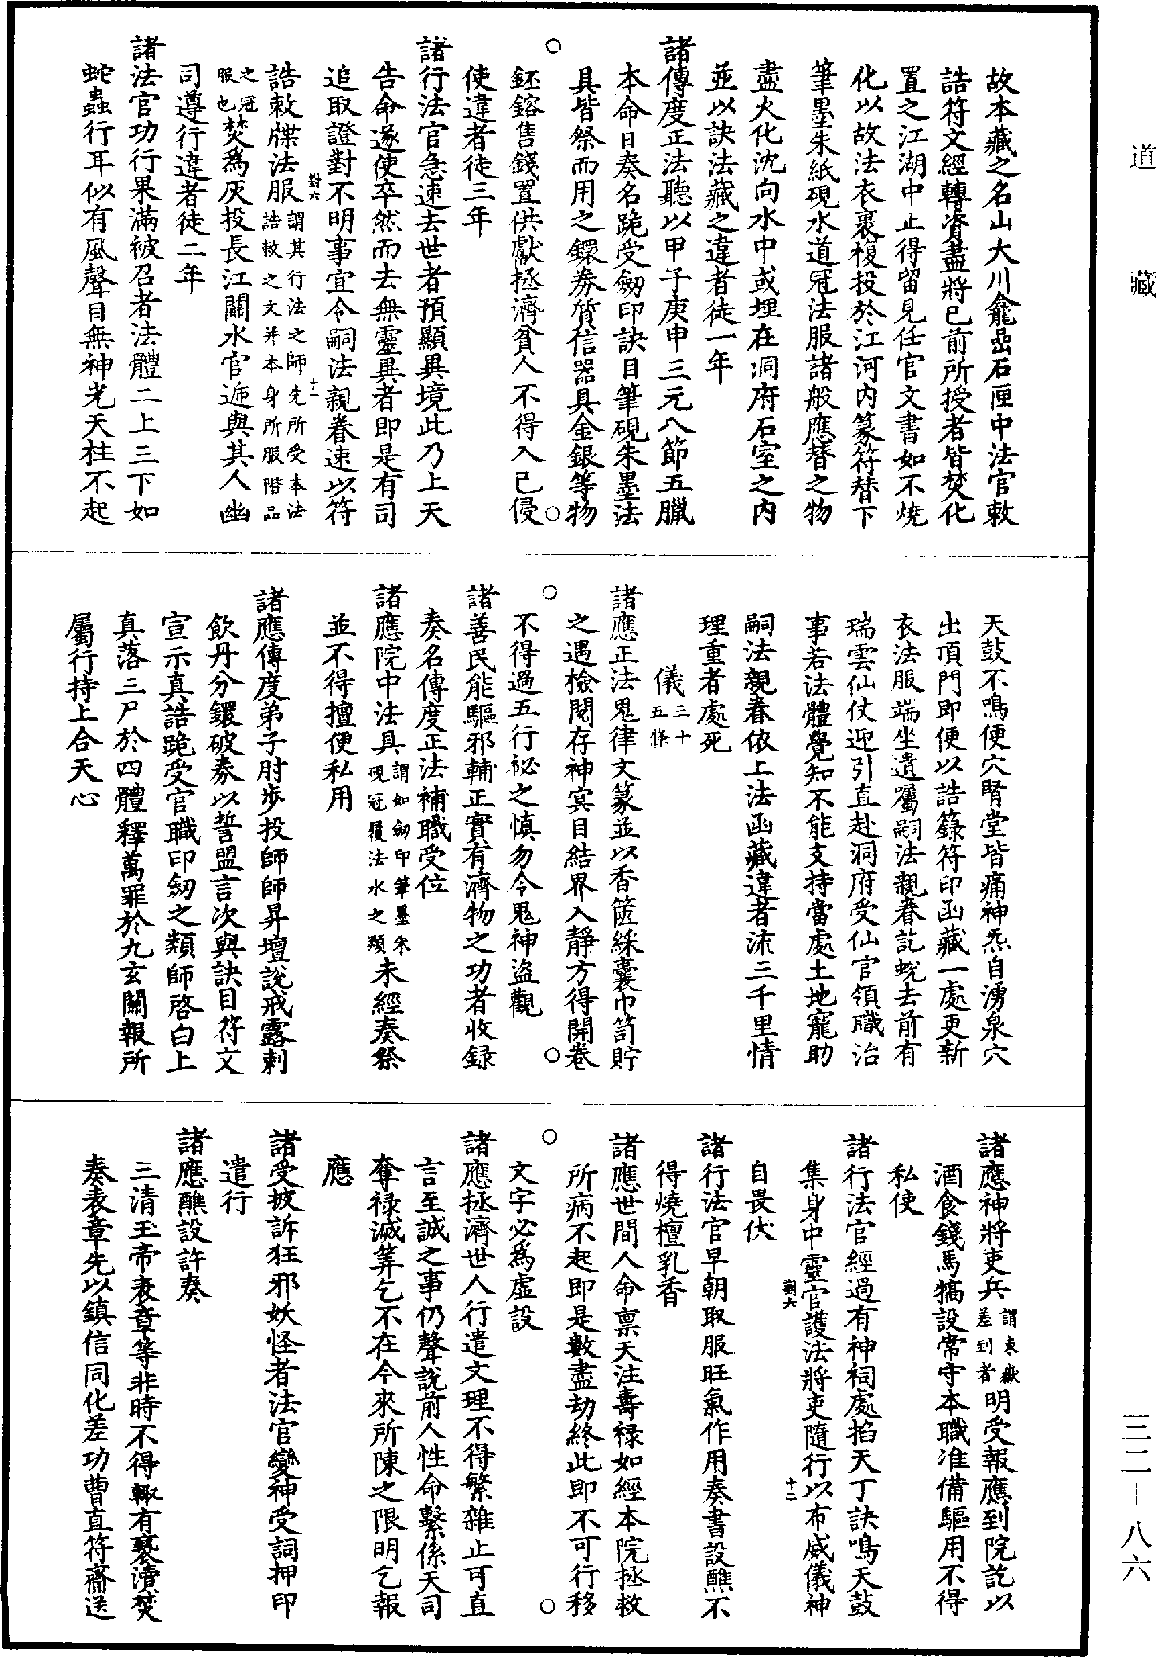 道藏
三二—八六
故本藏之名山大川龕嵒石匣中法官敕
誥符文經轉資盡將已前所授者皆焚化
置之江湖中止得留見任官文書如不燒
化以故法衣裹複投於江河内篆符替下
筆墨朱紙硯水道冠法服諸般應替之物
盡火化沈向水中或埋在洞府石室之内
並以訣法藏之違者徒一年
諸傳度正法聽以甲子庚申三元八節五臘
本命日奏名跪受劒印訣目筆硯朱墨法
具皆祭而用之鐶券質信器具金銀等物
鈺鎔售錢置供獻拯濟貧人不得入己侵
使違者徒三年
諸行法官急速去世者預顯異境此乃上天
告命遂使卒然而去無靈異者即是有司
追取證對不明事宜令嗣法親眷速以符
誥敕牒法服謂其行法之師先所受奉法誥敕之文并本身所服階品之冠服也焚爲灰投長江關水官遞與其人幽
司遵行違者徒二年
諸法官功行果滿被召者法體二上三下如
蛇蟲行耳似有風聲目無神光天柱不起
天鼓不鳴便穴腎堂皆痛神炁自湧泉穴
出頂門即便以誥籙符印函藏一處更新
衣法服端坐遺囑嗣法親眷訖蛻去前有
瑞雲仙仗迎引直赴洞府受仙官領職治
事若法體覺知不能支持當處土地竈助
嗣法親眷依上法函藏違者流三千里情
理重者處死
儀三十五條
諸應正法鬼律文篆並以香篋綵囊巾笥貯
之遇檢閱存神㝠目結界入靜方得開卷
不得過五行祕之慎勿令鬼神盜觀
諸善民能驅邪輔正實有濟物之功者收録
奏名傳度正法補職受位
諸應院中法具謂如劒印筆墨朱硯冠履法水之類未經奏祭
並不得擅便私用
諸應傳度弟子肘步投師師昇壇說戒露剌
飲丹分鐶破券以誓盟言次與訣目符文
宣示真誥跪受官職印劒之類師啓白上
真落三尸於四體釋萬罪於九玄關報所
屬行持上合天心
諸應神將吏兵謂東嶽差到者明受報應到院訖以
酒食錢馬犒設常守本職准備驅用不得
私使
諸行法官經過有神祠處掐天丁訣鳴天鼓
集身中靈官護法將吏隨行以布威儀神
自畏伏
諸行法官早朝取服旺氣作用奏書設醮不
得燒檀乳香
諸應世間人命禀天注壽禄如經本院拯救
所病不起即是數盡劫終此即不可行移
文字必爲虛設
諸應拯濟世人行遣文理不得繁雜止可直
言至誠之事仍聲說前人性命繫係天司
奪禄減筭乞不在今來所陳之限明乞報
應
諸受披訴狂邪妖怪者法官變神受詞押印
遣行
諸應醮設許奏
三清玉帝表章等非時不得輒有褻瀆焚
奏表章先以鎮信同化差功曹直符齋送